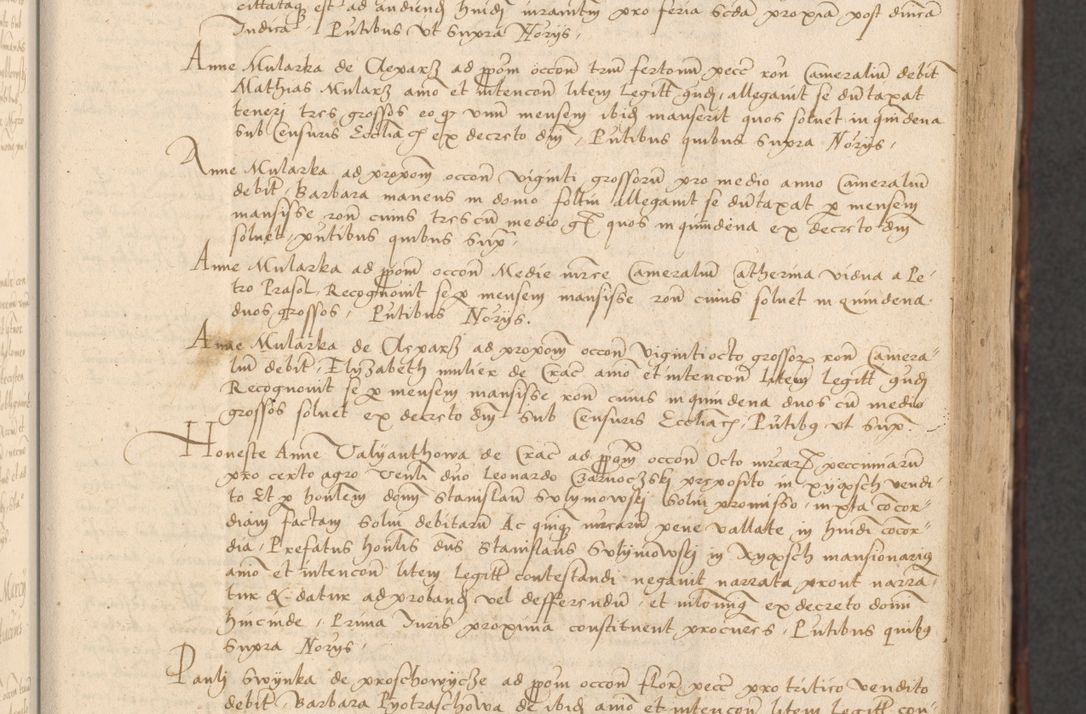 cittatq est ad audiend huidj iuramtm pro feria scda proxia post dnica
Judica, Pntibus vt supra Norijs,
Anne Mularka de Clepars ad ppom occon triu fertonu pecc ron Cameraliu debit
Mathias Mulars aīo et intencon litem legitt gndj, allegauit se duntaxat
tenerj tres grossos eo q vnu mensem ibidj manserit quos soluet in quindena
sub Censuris Ecclīacs ex decreto dnj, Pntibus quibus supra Norijs,
Anne Mularka ad propom occon viginti grossoru pro medio anno Cameraliu
debit, Barbara manens in domo allegauit se duntaxat p mensem
mansisse ron cuius tres cu medio gr quos in quindena ex decreto dnj
soluet, pntibus quibus supr,
Anne Mularka ad ppom occon Medie mrce Cameraliu Catherina vidua a Pe-
tro Prasol, Recognouit se p mensem mansisse ron cuius soluet in quindena
duos grossos, Pntibus Norijs.
Anne Mularka de Clepars ad propom occon viginti octo grossor ron Camera-
liu debit, Elyzabeth mulier de Crac aīo et intencon litem legitt gndj
Recognouit se p mensem mansisse ron cuius in quindena duos cu medio
grossos soluet ex decreto dnj sub Censuris Ecclīacs, Pntibq vt supr.
Honeste Anne Valyanthowa de Crac ad ppom occon Octo mrcar pecuniaru
pro certo agro venli duo Leonardo Czarnoczskj preposito in xyqpsch vendi-
to Et p honlem domj Stanislau Sulymowskj solui promisso, iuxta cocor-
diam factam solui debitaru Ac quinq mrcaru pene vallate in huidj cocor-
dia, Prefatus honlis dns Stanislaus Sulymowskj in Xyqpsch mansionariq
aīo et intencon litem legitt contestandi negauit narrata prout narra-
tur & datur ad proband vel defferendu, et iuloniuq ex decreto domj
hincinde, Prima Juris proxima constituent procures, Pntibus quibq
supra Norijs,
Paulj Swynka de proschowycze ad ppom occon flor pecc pro tritico vendito
debit, Barbara Pyotraschowa de ibidj aīo et intencon litem legitt con-